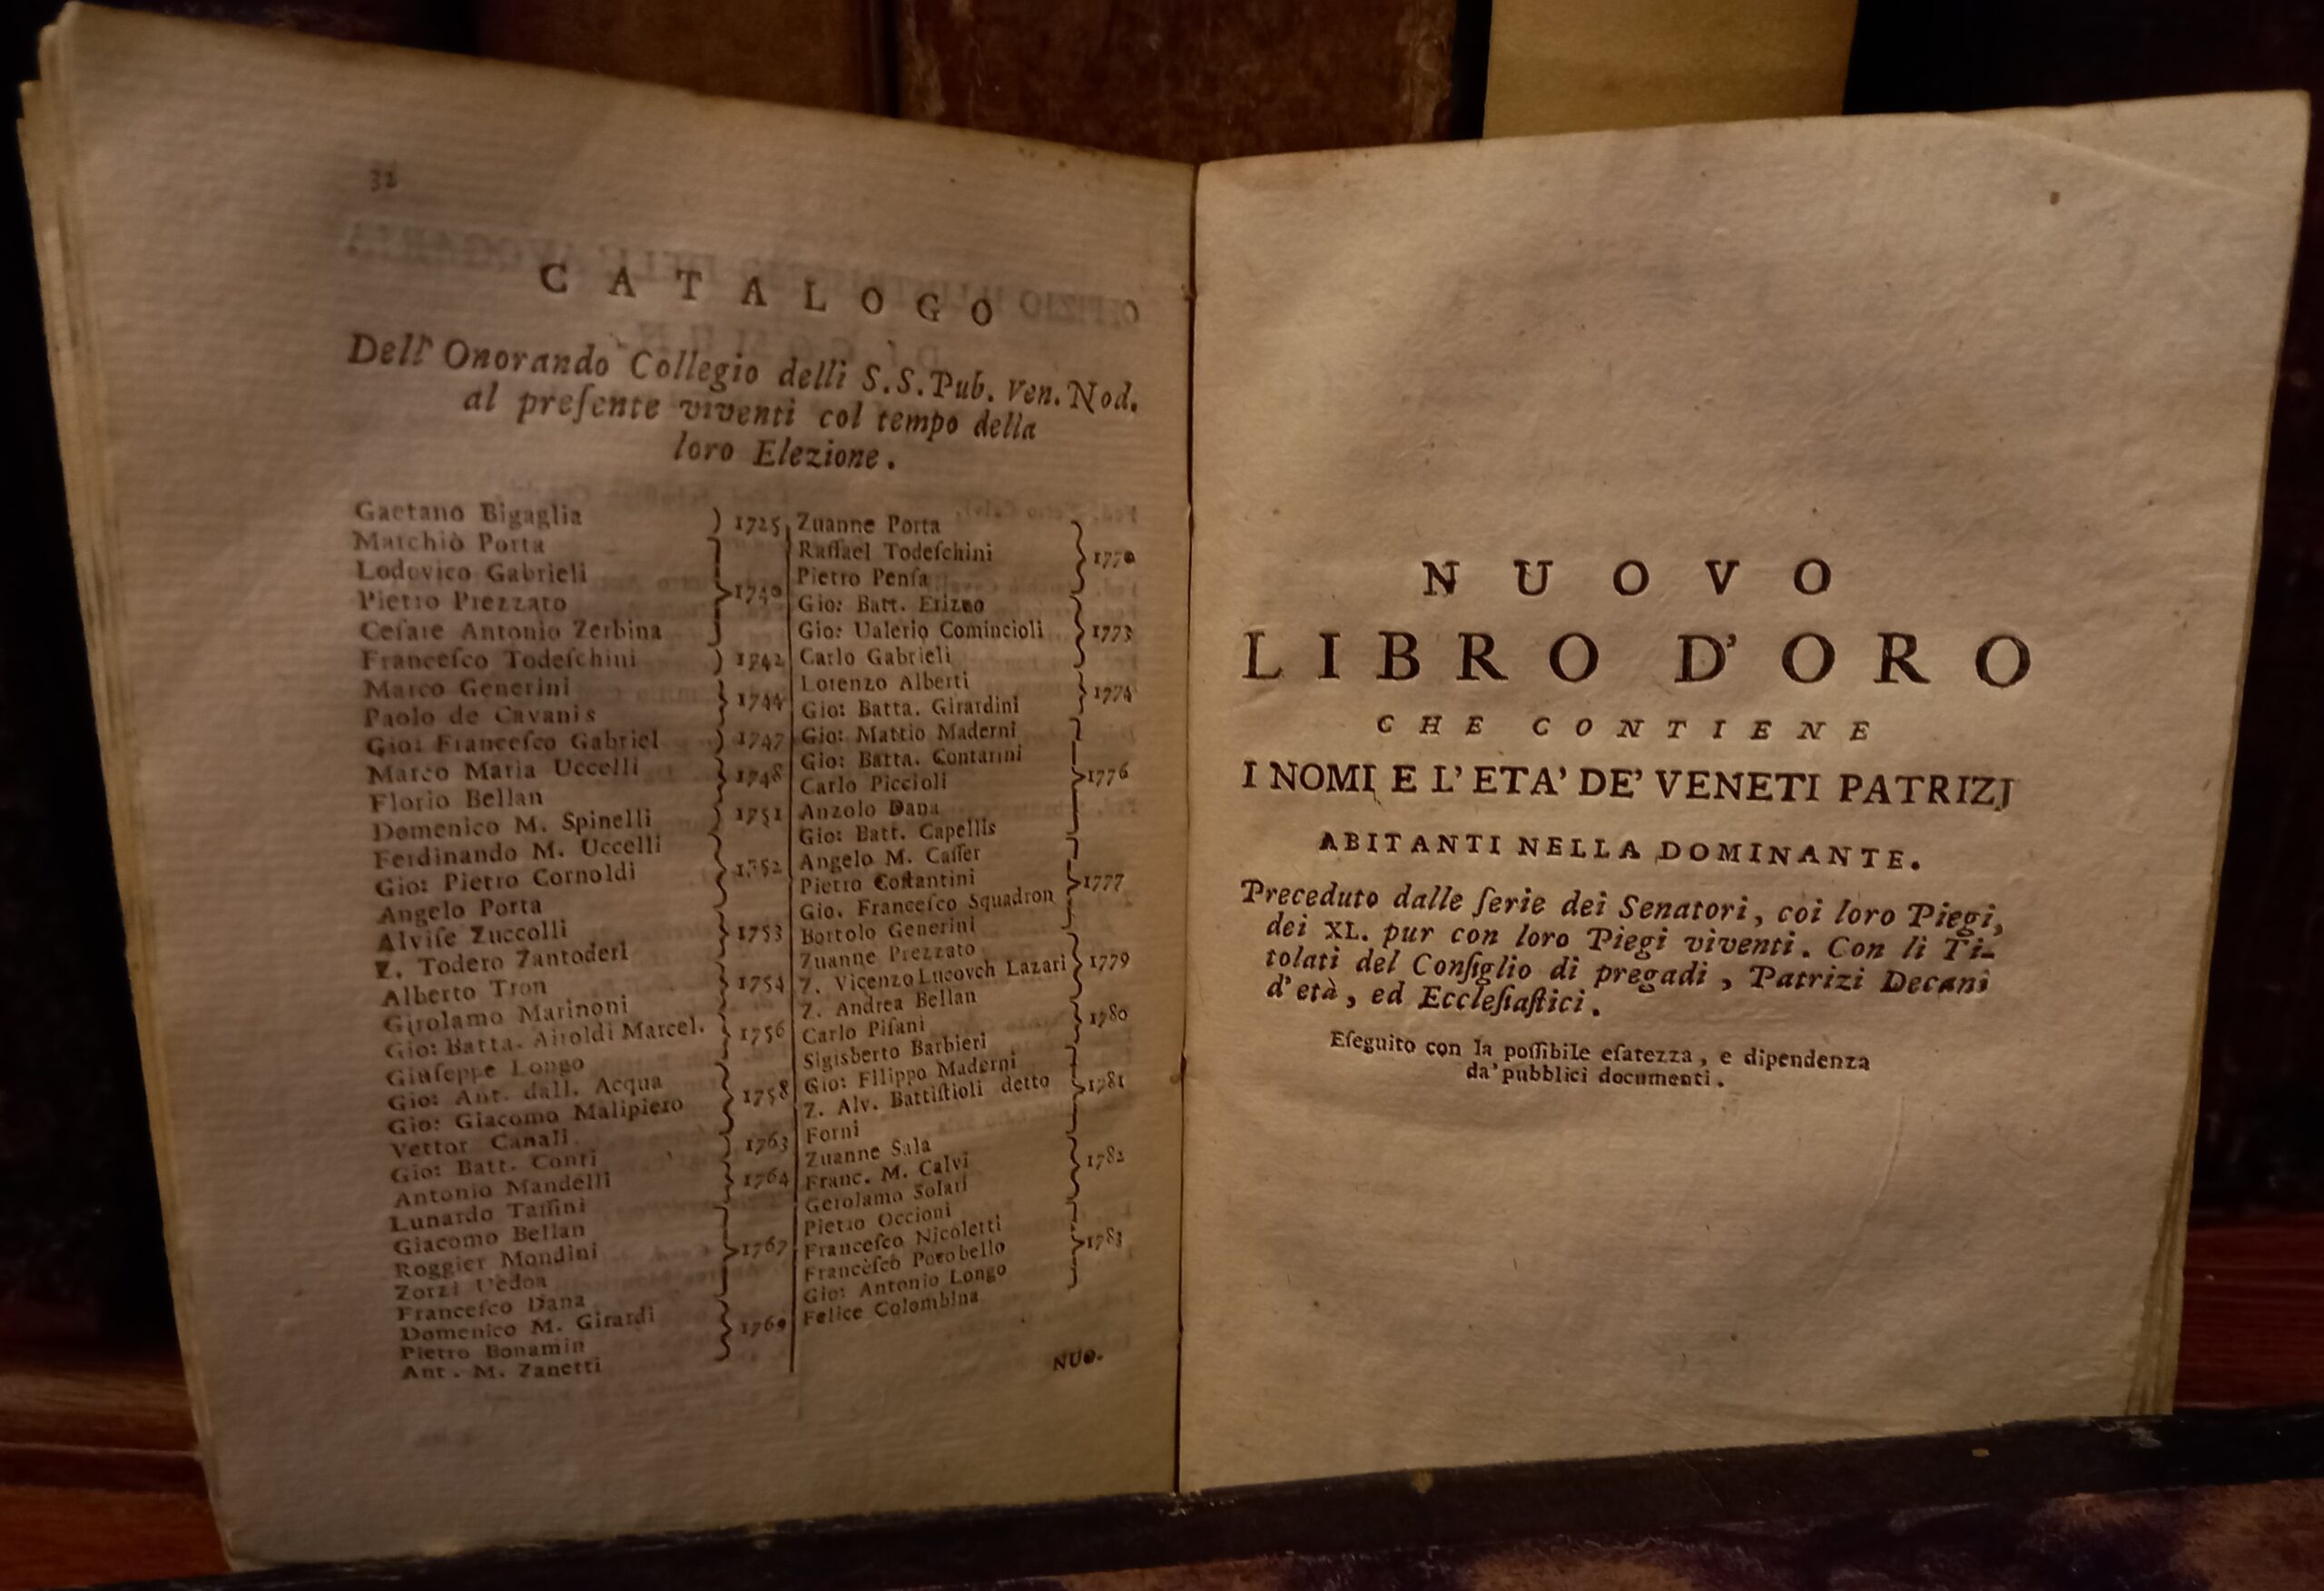 32
CATALOGO
Dell' Onorando Collegio delli S.S. Pub. Ven. Nod.
al preſente viventi col tempo della
loro Elezione.
Gaetano Bigaglia ) 1725
Marchiò Porta
Lodovico Gabrieli
Pietro Prezzato
1740
Ceſare Antonio Zerbina
Franceſco Todeſchini ) 1742
Marco Generini
Paolo de Cavanis
1744
Gio: Franceſco Gabriel ) 1747
Marco Maria Uccelli
Florio Bellan
1748
Domenico M. Spinelli ) 1751
Ferdinando M. Uccelli
Gio: Pietro Cornoldi
Angelo Porta
1752
Alviſe Zuccolli
Z. Todero Zantoderl
1753
Alberto Tron
Girolamo Marinoni
1754
Gio: Batta. Airoldi Marcel.
Giuſeppe Longo
1756
Gio: Ant. dall. Acqua
Gio: Giacomo Malipiero
Vettor Canali
1758
Gio: Batt. Conti
1763
Antonio Mandelli
Lunardo Taſſini
1764
Giacomo Bellan
Roggier Mondini
Zorzi Uedoa
Franceſco Dana
1767
Domenico M. Girardi
Pietro Bonamin
Ant. M. Zanetti
1769
Zuanne Porta
Raffael Todeſchini
Pietro Penſa
1770
Gio: Batt. Erizzo
Gio: Ualerio Comincioli
Carlo Gabrieli
1773
Lorenzo Alberti
Gio: Batta. Girardini
1774
Gio: Mattio Maderni
Gio: Batta. Contarini
Carlo Piccioli
Anzolo Dana
Gio: Batt. Capellis
1776
Angelo M. Caſſer
Pietro Coſtantini
Gio. Franceſco Squadron
Bortolo Generini
1777
Zuanne Prezzato
Z. Vicenzo Lucovch Lazari
Z. Andrea Bellan
1779
Carlo Piſani
Sigisberto Barbieri
1780
Gio: Filippo Maderni
Z. Alv. Battiſtioli detto
Forni
Zuanne Sala
1781
Franc. M. Calvi
Gerolamo Solari
1782
Pietro Occioni
Franceſco Nicoletti
Franceſco Porobello
Gio: Antonio Longo
Felice Colombina
1783
NUO-
NUOVO
LIBRO D'ORO
CHE CONTIENE
I NOMI E L'ETA' DE' VENETI PATRIZJ
ABITANTI NELLA DOMINANTE.
Preceduto dalle ſerie dei Senatori, coi loro Piegi,
dei XL. pur con loro Piegi viventi. Con li Ti-
tolati del Conſiglio di pregadi, Patrizi Decani
d'età, ed Eccleſiaſtici.
Eſeguito con la poſſibile eſatezza, e dipendenza
da' pubblici documenti.